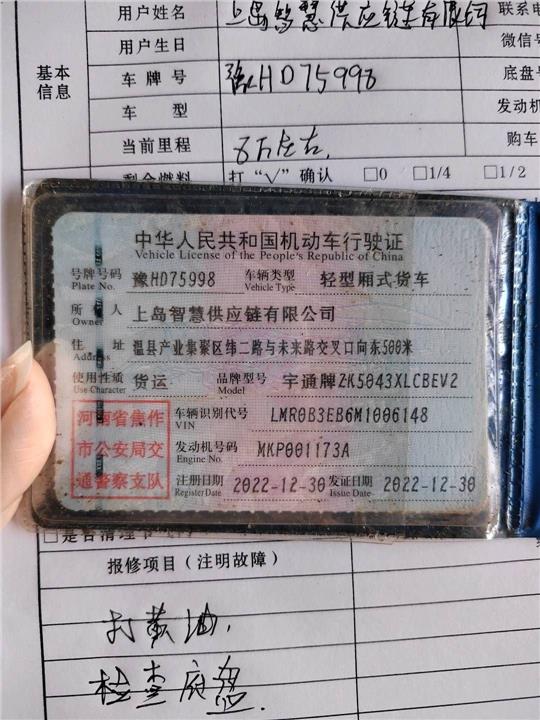 用户姓名 上岛智慧供应链有限公司 联系电
用户生日 微信号
基本信息
车牌号 豫HD75998 底盘号
车型 发动机
当前里程 8万左右. 购车
剩余燃料 打“√”确认 □0 □1/4 □1/2
中华人民共和国机动车行驶证
Vehicle License of the People's Republic of China
号牌号码 豫HD75998 车辆类型 轻型厢式货车
Plate No. Vehicle Type
所有人 上岛智慧供应链有限公司
Owner
住址 温县产业集聚区纬二路与未来路交叉口向东500米
Address
使用性质 货运 品牌型号 宇通牌ZK5043XLCBEV2
Use Character Model
河南省焦作
市公安局交
通警察支队
车辆识别代号 LMR0B3EB6M1006148
VIN
发动机号码 MKP001173A
Engine No.
注册日期 2022-12-30 发证日期 2022-12-30
Register Date Issue Date
□是否清理
报修项目（注明故障）
打黄油，
检查底盘.